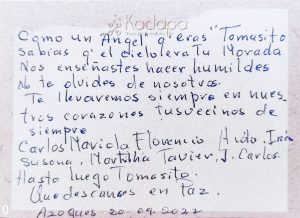 Kaclapa
Como un Angel q' eras "Tomasito
Sabias q' el dielolera Tu Morada
Nos enseñastes hacer humildes
No te olvides de nosotros.
Te llevaremos siempre en nues
tros corazones tusvecinos de
siempre
Carlos Mariola Florencio
Susona, Martha Javier, J. Carlos.
Hasta luego Tomasito.
Que descanses en Paz.
Azogues 20-09-2022